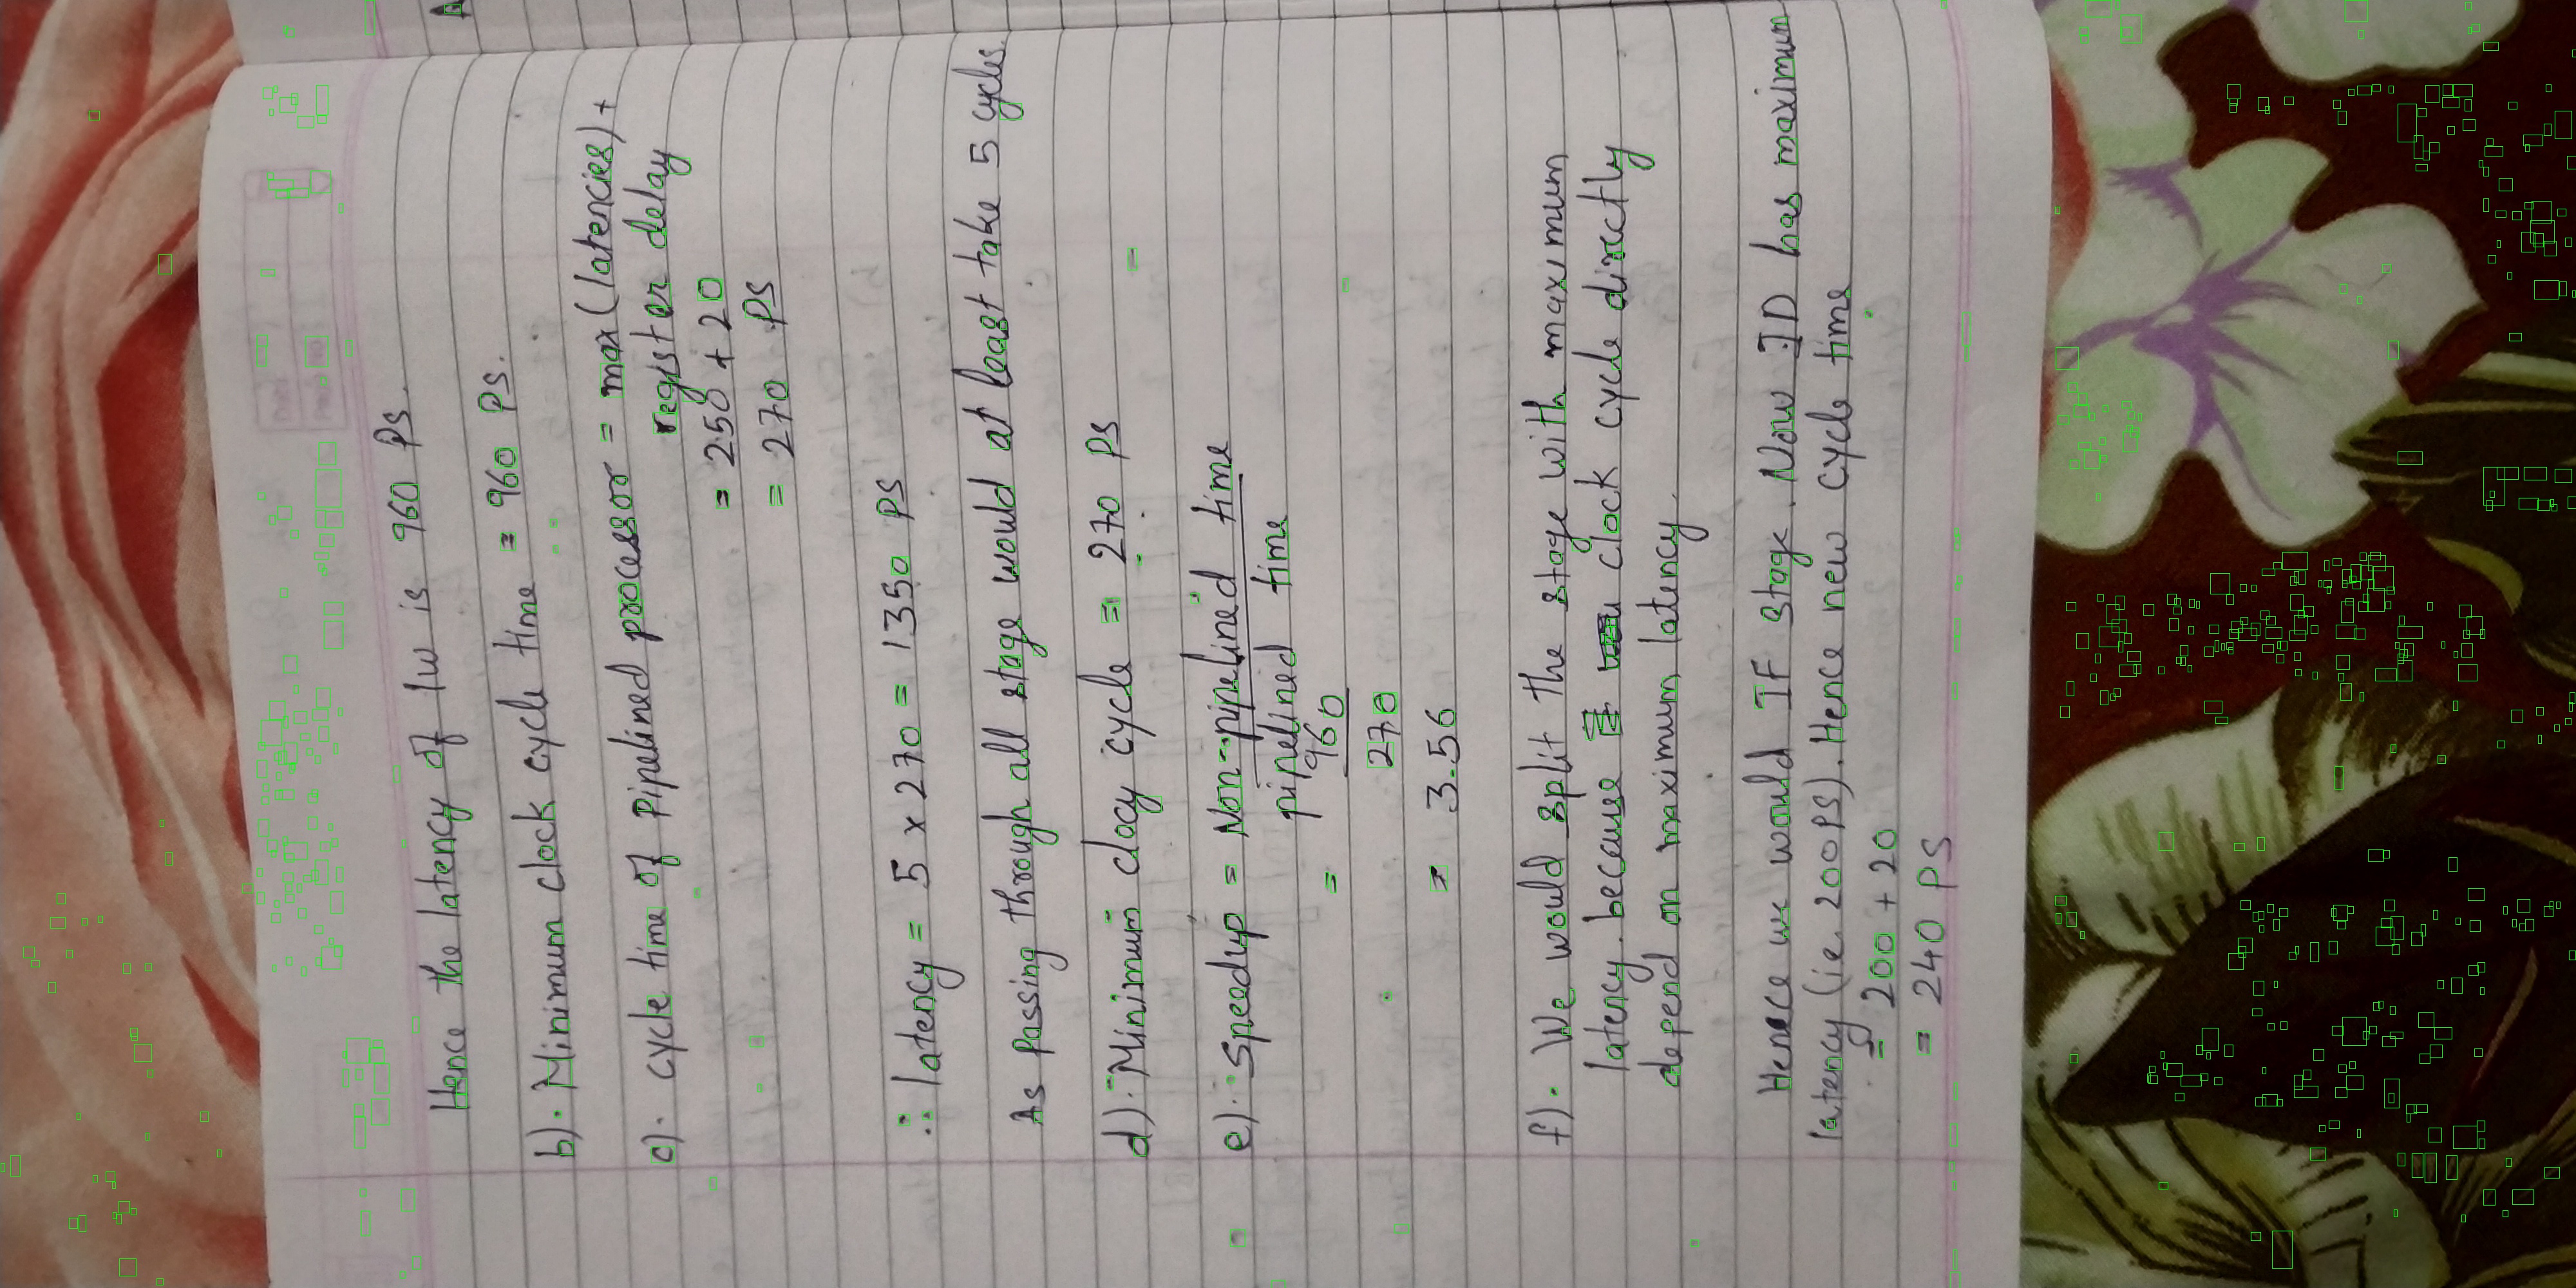 Date
Page No
Hence the latency of lw is 960 Ps.
b). Minimum clock cycle time = 960 Ps.
c). cycle time of Pipelined processor = max (latencies) +
register delay
= 250 + 20
= 270 Ps
∴ latency = 5 x 270 = 1350 PS
As Passing through all stage would at least take 5 cycles.
d). Minimum clocy cycle = 270 Ps
e). Speedup = Non-pipelined time
pipelined time
= 960
270
= 3.56
f). We would split the stage with maximum
latency. because clock cycle directly
depend on maximum latency.
Henace we would IF stage. Now ID has maximum
latency (ie. 200PS). Hence new cycle time
= 200 + 20
= 240 PS